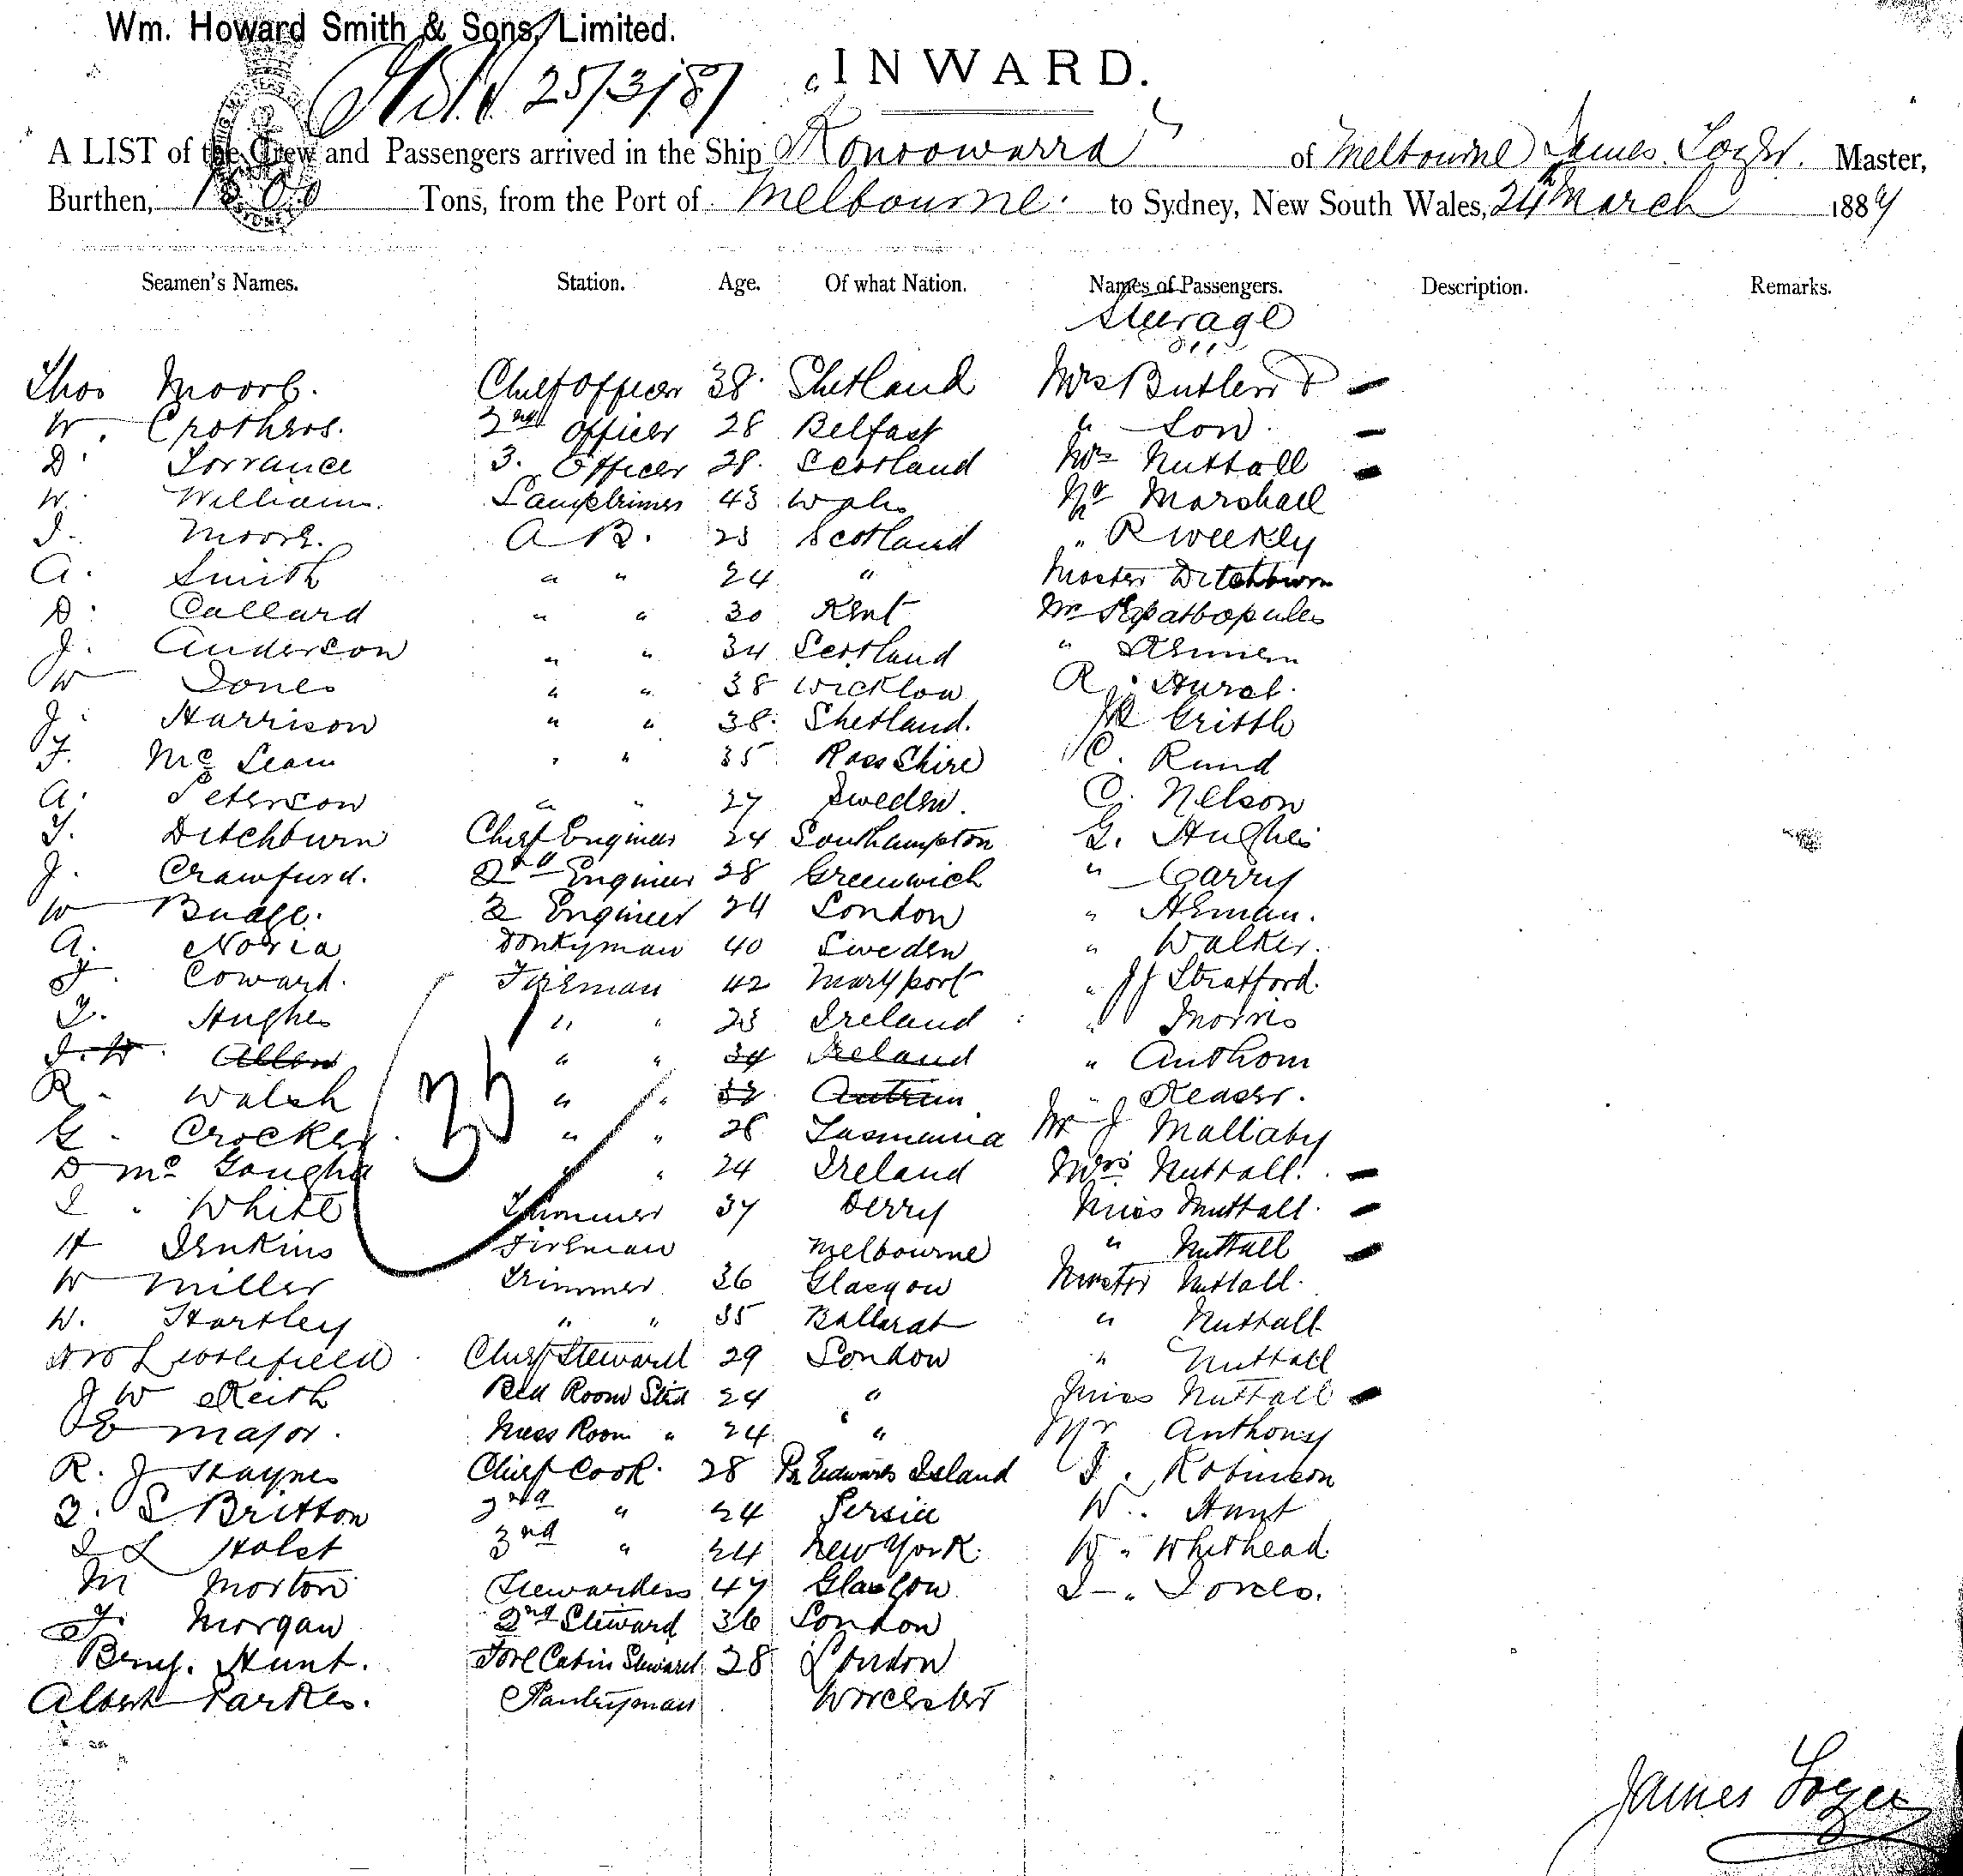 Wm. Howard Smith & Sons, Limited.
25/3/87
INWARD.
A LIST of the Crew and Passengers arrived in the Ship Konoowarra of Melbourne James Master,
Burthen, Tons, from the Port of Melbourne. to Sydney, New South Wales, 24th March 1887
Seamen's Names. Station. Age. Of what Nation. Names of Passengers. Description. Remarks.
Steerage
Thos Moore. Chief Officer 38. Shetland Mrs Butler &
W. Crothers. 2nd Officer 28 Belfast " Son.
D. Torrance 3. Officer 28. Scotland Mrs Nuttall
W. Williams. Lamptrimer 43 Wales Mr Marshall
J. Moore. A B. 23 Scotland " R Weekly
A. Smith " " 24 " Master Ditchburn
D. Callard " " 30 Kent Mr
J. Anderson " " 34 Scotland "
W Jones " " 38 Wicklow R. Hurst.
J. Harrison " " 38. Shetland.
F. Mc " " 35 Ross Shire C. Rund
A. Peterson " " 27 Sweden. C. Nelson
T. Ditchburn Chief Engineer 24 Southampton G. Hughes
J. Crawfurd. 2nd Engineer 28 Greenwich " Carry
W Budge. 3 Engineer 24 London "
A. Noria Donkyman 40 Sweden " Walker.
J. Coward. Fireman 42 Maryport " JJ Stratford.
T. Hughes " " 23 Ireland " Morris
J. W. Allen " " 34 Ireland " Anthom
R. Walsh " " 32 Antrim "
G. Crocker. " " 28 Tasmania Mr J Mallaby
35
D Mc " " 24 Ireland Mrs Nuttall.
J. White Trimmer 37 Derry Miss Nuttall.
H Jenkins Fireman Melbourne " Nuttall
W Miller Trimmer 36 Glasgow Master Nuttall.
W. Hartley " " 35 Ballarat " Nuttall
Chief Steward 29 London " Nuttall
J W Keith Bed Room Std 24 " Miss Nuttall
E Major. Mess Room " 24. " Mr Anthony
R. J Haynes Chief Cook. 28 Pr Edwards Island J. Robinson
S Britton 2nd " 24 Persia W. Hunt
Holst 3rd " 24 New York. W. Whithead.
M Morton Stewardess 47 Glasgow J. Jones.
J. Morgan 2nd Steward 36 London
Benj. Hunt. Fore Cabin Steward 28 London
Albert Parkes. Pantryman Worcester
James